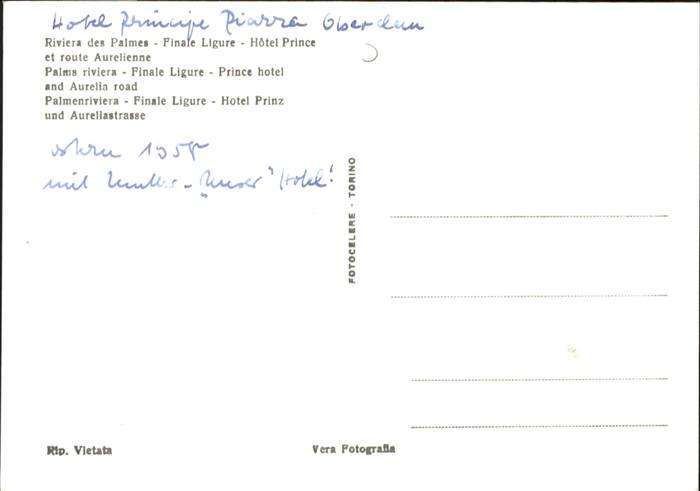 Hotel Principe Piazza Oberdan
Riviera des Palmes - Finale Ligure - Hôtel Prince
et route Aurelienne
Palms riviera - Finale Ligure - Prince hotel
and Aurelia road
Palmenriviera - Finale Ligure - Hotel Prinz
und Aureliastrasse
Ostern 1958
mit Mutter - "Unser" Hotel!
FOTOCELERE - TORINO
Rip. Vietata
Vera Fotografia